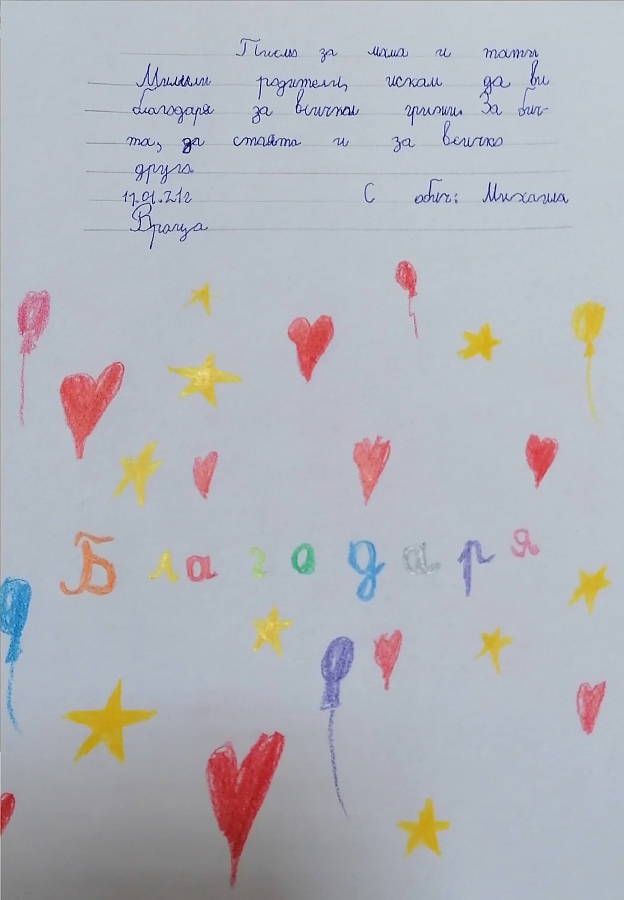 Писмо за мама и тати
Мили родители, искам да ви
благодаря за всички грижи. За оби-
та, за стаята и за всичко
друго
17.01.21г С обич: Михаила
Враца
Благодаря